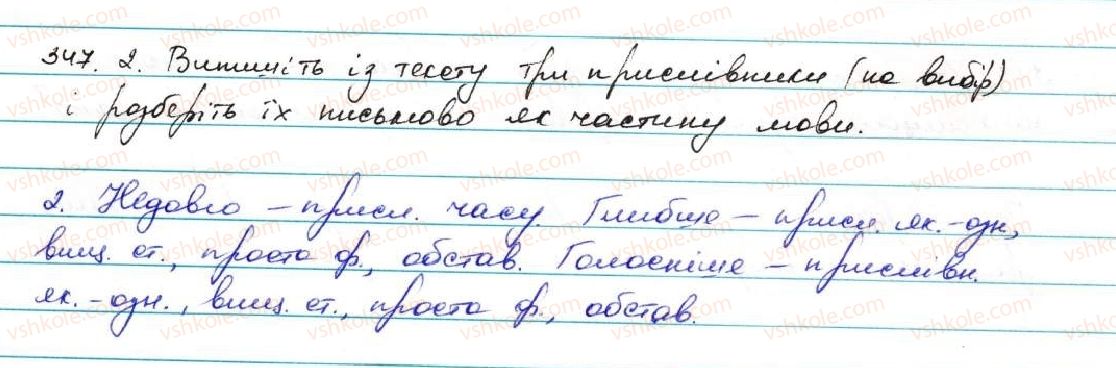 347. 2. Випишіть із тексту три прислівники (на вибір)
і розберіть їх письмово як частину мови.
2. Недовго – присл. часу. Глибше – присл. як.-озн,
вищ. ст., проста ф., обстав. Голосніше – прислівн.
як.-озн., вищ. ст., проста ф., обстав.